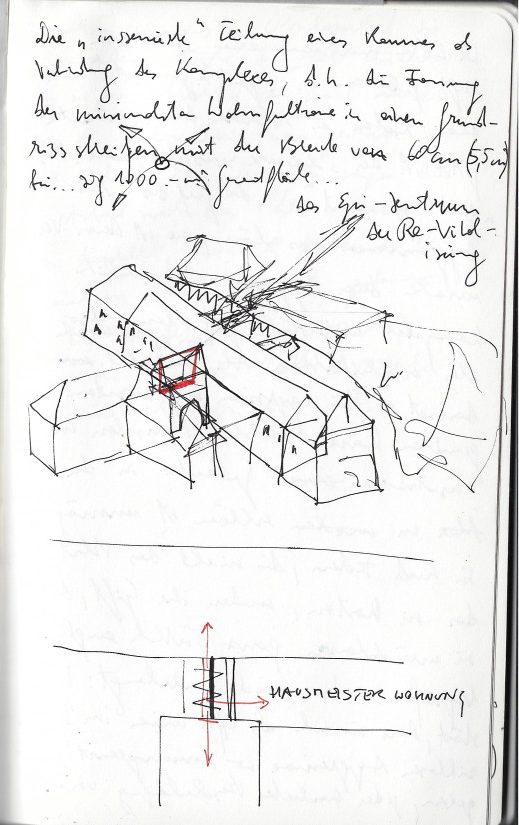 Die „inszenierte" Teilung eines Raumes als
des Komplexes, d.h. die
der minimalsten Wohnfunktionen in einen Grund-
rissstreifen mit der Breite von 60cm (5,5m²)
für... 1000.- m² Grundfläche...
das Epi-Zentrum
der Re-Vital-
isierung
HAUSMEISTER WOHNUNG